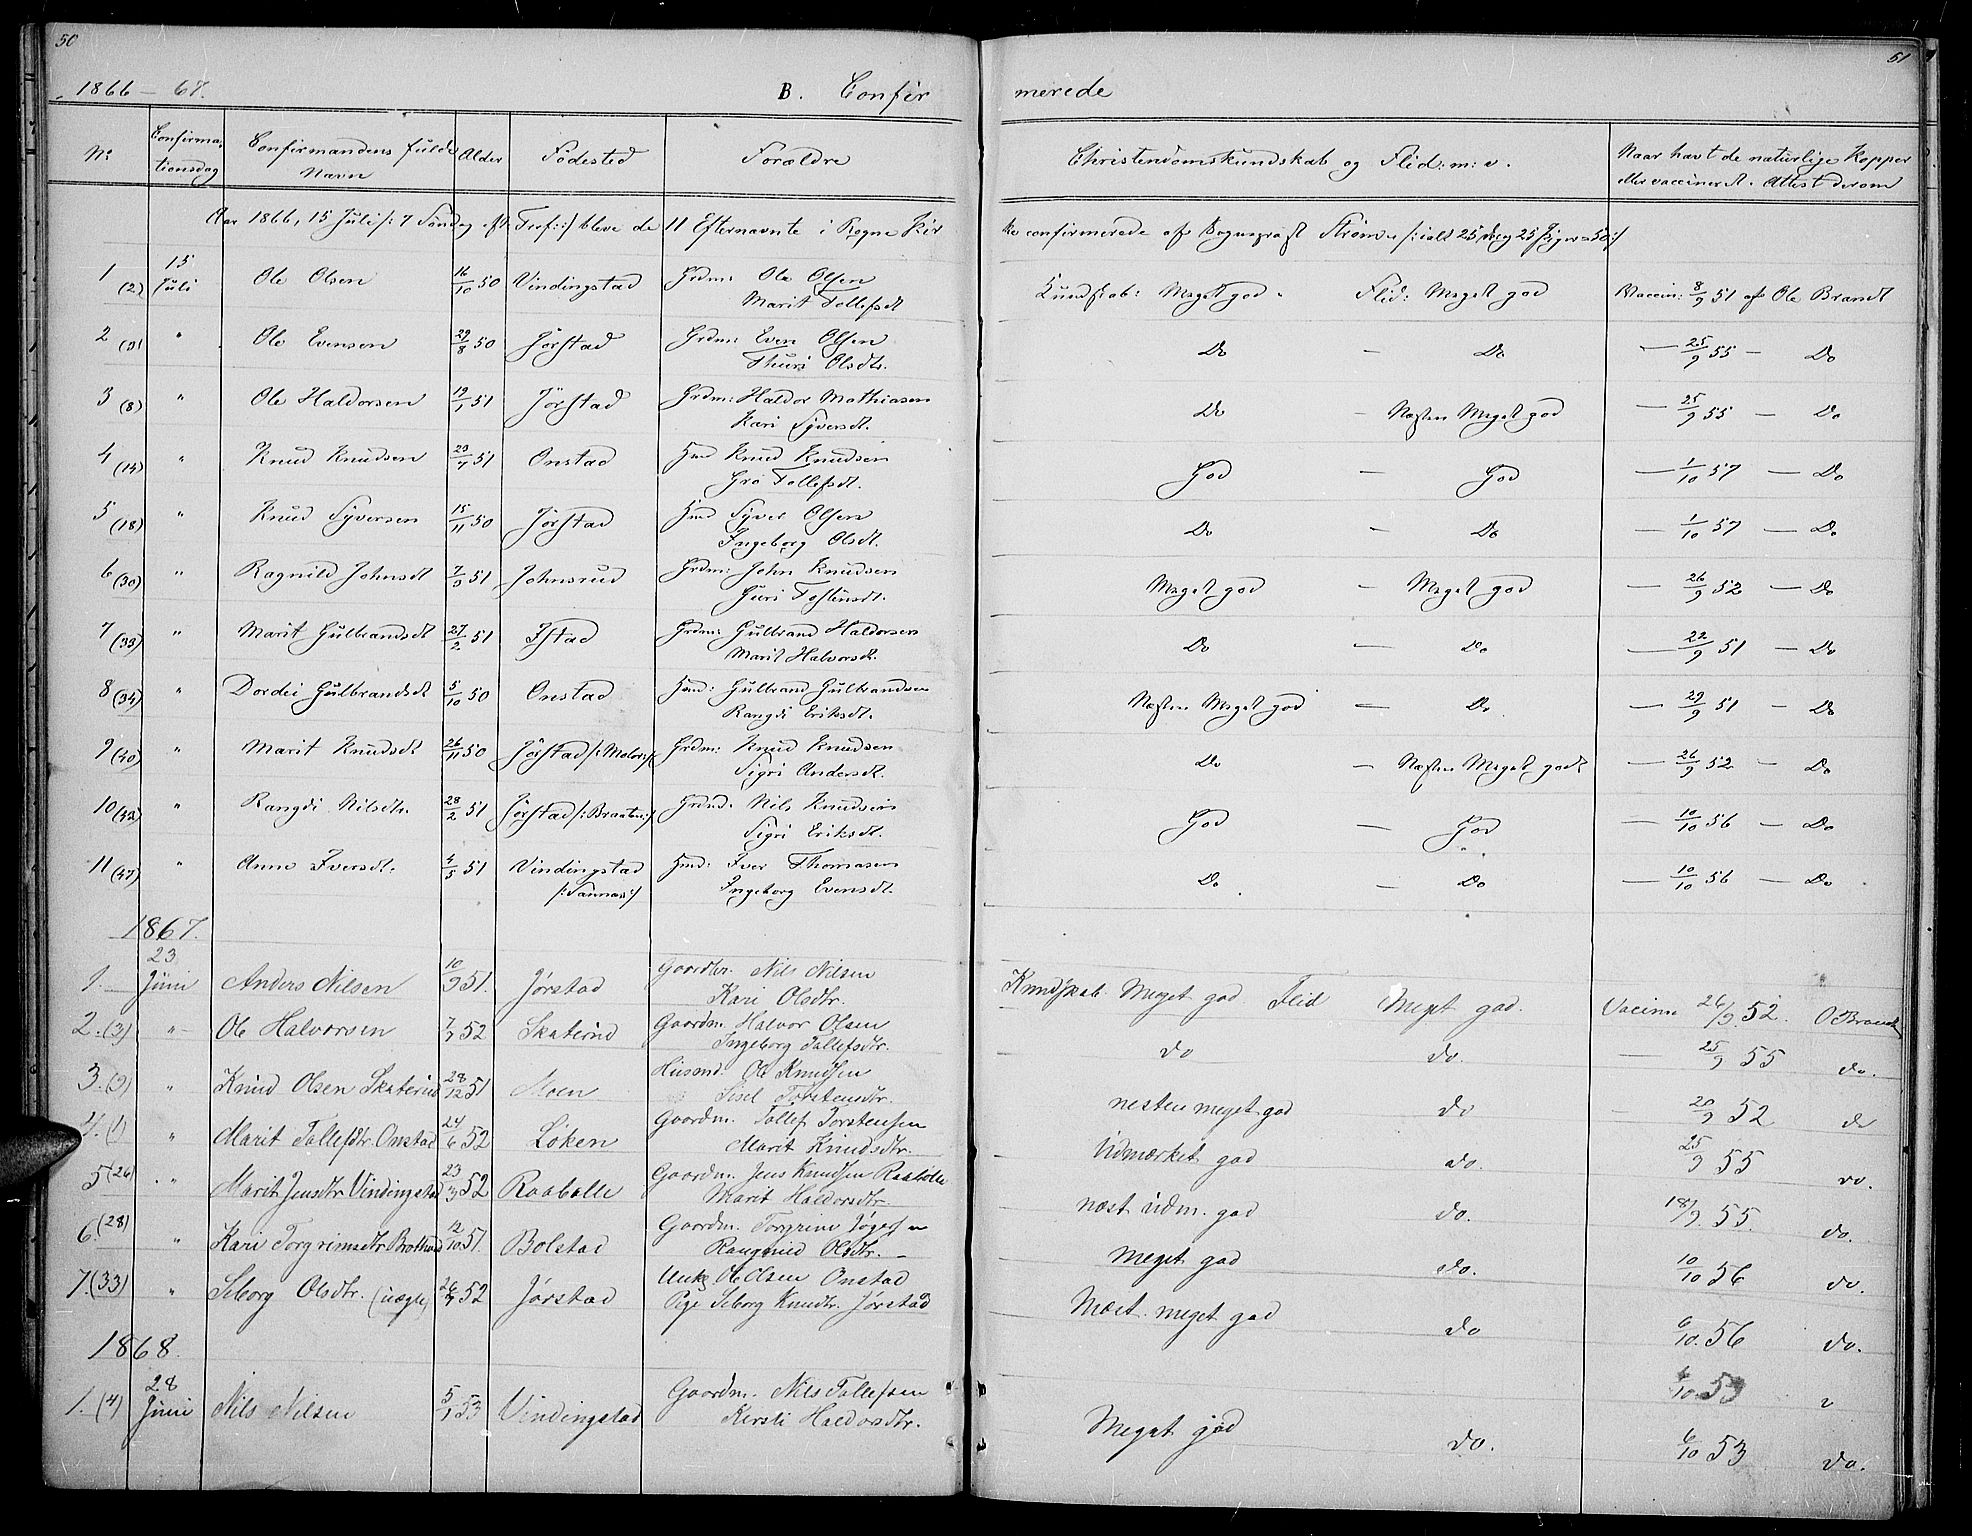 50
51
1866 – 67.
B. Confir
merede
No
Confirma-
tionsdag
Confirmandens fulde
Navn
Alder
Födested
Forældre
Christendomskundskab og Flid: m: v.
Naar havt de naturlige Kopper
eller vaccineret. Attest derom
Aar 1866, 15 Juli /: 7 Söndag eft. Tref: :/ bleve de 11 Efternavnte i Rogne Kir
ke confirmerede af Sognepræst Ströms
1 (2) 15 Juli Ole Olsen 16/10 50 Vindingstad Grdm: Ole Olsen Kundskab: Meget god Flid: Meget god Vaccin: 8/9 51 af Ole Brandt
Marit Tollefsdt
2 " Ole Evensen 29/8 50 Jörstad Grdm: Even Olsen Do – Do – 25/9 55 – Do
Thuri Olsdtr.
3 (8) " Ole Haldorsen 19/1 51 Jörstad Grdm: Haldor Mathiasen Do – Næsten Meget god – 25/9 55 – Do
Kari Syversdt.
4 (14) " Knud Knudsen 23/7 51 Onstad Hmd Knud Knudsen God – God – 1/10 57 – Do
Gro Tollefsdt.
5 (18) " Knud Syversen 15/11 50 Jörstad Hmd Syver Olsen Do – Do – 1/10 57 – Do
Ingeborg Olsdt.
6 (30) " Ragnild Johnsdt 7/3 51 Johnsrud Grdm: John Knudsen Meget god – Meget god – 26/9 52 – Do
Guri Tostensdt.
7 (33) " Marit Gulbrandsdt 27/2 51 Istad Grdm: Gulbrand Haldorsen Do – Do – 22/9 51 – Do
Marit Halvorsdt.
8 (34) " Dordei Gulbrandsdt 5/10 50 Onstad Hmd: Gulbrand Gulbrandsen Næsten Meget god – Do – 29/9 51 – Do
Rangdi Eriksdt.
9 (40) " Marit Knudsdt 26/11 50 Jörstad /: Moløs :/ Grdm: Knud Knudsen Do – Næsten Meget godt – 26/9 52 – Do
Sigri Andersdt.
10 " Rangdi Nilsdtr. 28/2 51 Jörstad /: Braaten :/ Grdm: Nils Knudsen God – God – 10/10 56 – Do
Sigri Eriksdt.
11 (47) " Anne Iversdt. 4/5 51 Vindingstad Hmd: Iver Thomasen Do – Do – 10/10 56 – Do
/: Sannæs :/ Ingeborg Evensdt.
1867.
1. 23 Juni Anders Nilsen 10/9 51. Jørstad Gaardbr. Nils Nilsen Kundskab. Meget god Flid Meget god. Vacine 26/9 52. O Brandt
Kari Olsdtr.
2. (3) " Ole Halvorsen 7/1 52 Skaterud Gaardm. Halvor Olsen do do. – 25/9 55 do.
Ingeborg Tollefsdtr.
3. (9) " Knud Olsen Skaterud 28/12 51 Moen Husmd. Ole Knudsen nesten meget god do – 20/9 52 do
Sisel Torstensdtr.
4. (1) " Marit Tollefsdtr. Onstad 24/6 52 Løken Gaardm. Tollef Torstensen Udmærket god do. 25/9 55 do.
Marit Knudsdtr.
5 (26) " Marit Jensdtr. Vindingstad 23/3 52 Raabølle Gaardm. Jens Knudsen Raabølle næst udm. god do. 18/9 55. do.
Marit Haldorsdtr.
6. (28) " Kari Torgrimsdtr 12/10 51. Bolstad Gaardm. Torgrim meget god do. 10/10 56 do.
Rangnild Olsdtr.
7. (33) " Seborg Olsdtr. (uægte) 26/7 52 Jørstad Unk. Ole Olsen Onstad Næst. meget god do 6/10. 56 do.
Pige Seborg Knudtr. Jørstad
1868.
6/10. 53
1. (4) 28 Juni Nils Nilsen 5/1 53 Vindingstad Gaardm. Nils Tollefsen Meget god do. 6/10 53 do.
Kersti Haldorsdtr.